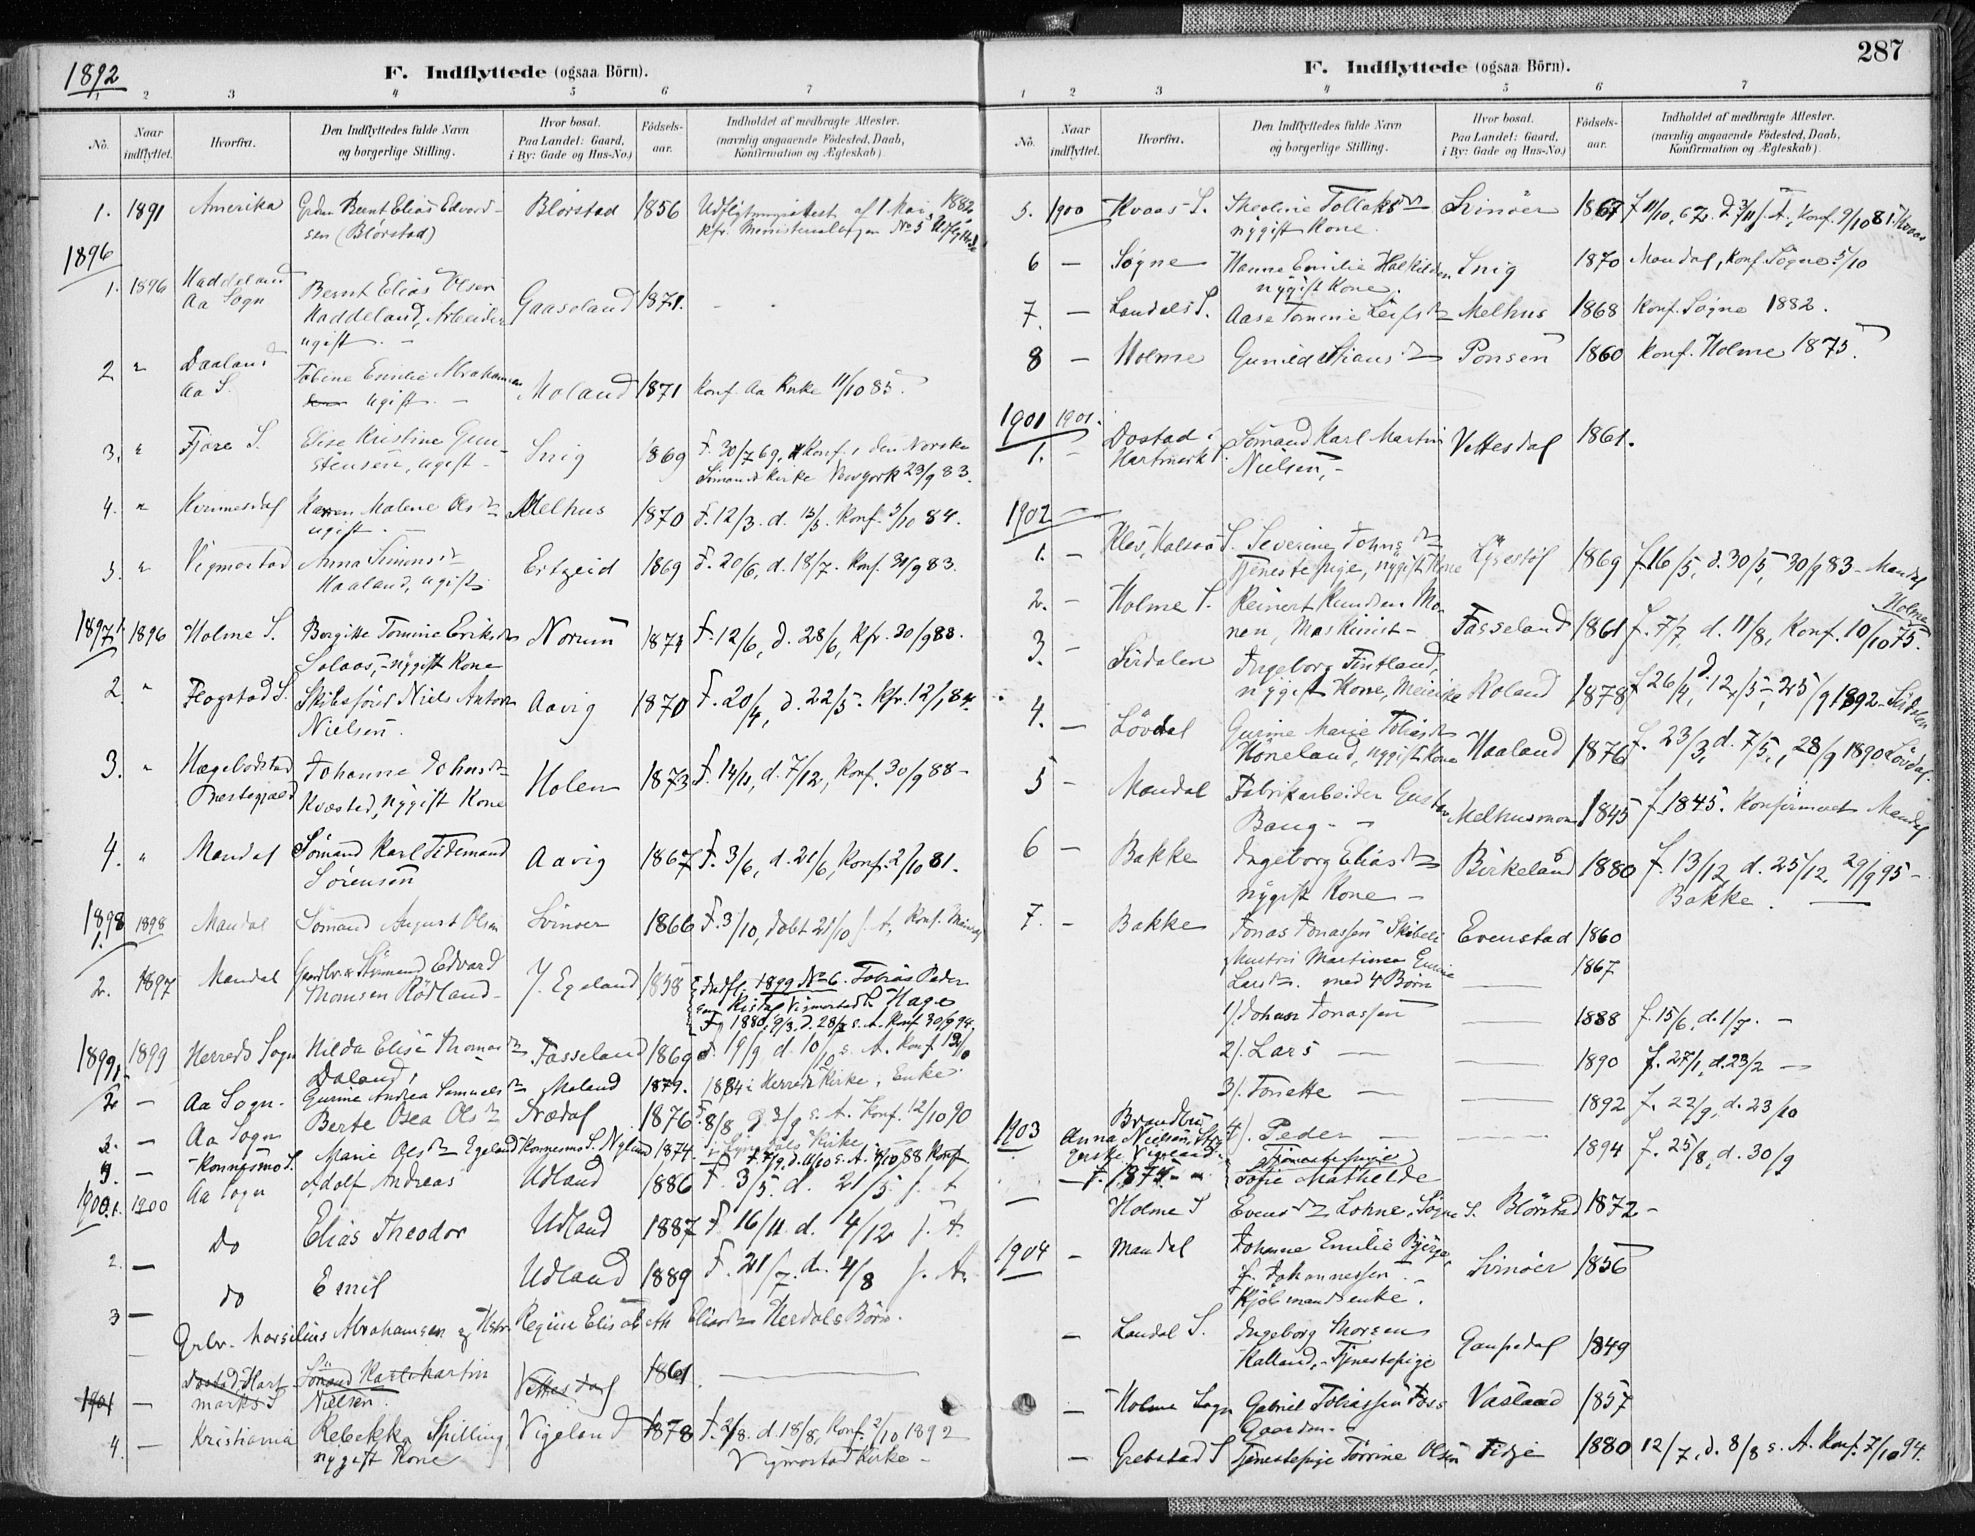 1892
F. Indflyttede (ogsaa Börn).
1 2 3 4 5 6 7
No. Naar indflyttet. Hvorfra. Den Indflyttedes fulde Navn og borgerlige Stilling. Hvor bosat. Paa Landet: Gaard, i By: Gade og Hus-No.) Födsels-aar. Indholdet af medbragte Attester. (navnlig angaaende Födested, Daab, Konfirmation og Ægteskab)
1. 1891 Amerika Bernt Elias Edvard- Blörstad 1856 af 1 Mai 1882
sen (Blörstad) kfr. Ministerialbogen No 5
1896
1. 1896 Haddeland Bernt Elias Olsen Gaaseland 1871.
Aa Sogn Haddeland, Arbeider
ugift. -
2 " Daaland Tobine Emilie Abraham Moland 1871 Konf. Aa Kirke 11/10 85.
Aa S. ugift. -
3. " Fjære S. Elise Kristine Gun- Snig 1869 F. 30/7 69, Konf. i den Norske
stensen, ugift - Sömands Kirke Newyork 23/9 83.
4. " Kvinnesdal Karen Malene Olsdr Melhus 1870 F. 12/3. d. 13/5. Konf. 5/10 84.
ugift. -
5. " Vigmostad Anna Simonsdr Ertzeid 1869 F. 20/6, d. 18/7. Konf. 30/9 83.
Haaland, ugift
1897 1. 1896 Holme S. Bergitte Tomine Eriksdr Norum 1874 F. 12/6, d. 28/6, kfr. 30/9 88.
Solaas, - nygift Kone
2. " Flogstad S. Skibsförer Niels Anton Aavig 1870 F. 20/4, d. 22/5. kfr. 12/1 84.
Nielsen.
3. " Hægebostad Johanne Johnsdr Holen 1873 F. 14/11, d. 7/12, Konf. 30/9 88 -
Præstegjæld Kvæstad, nygift Kone
4. " Mandal Sömand Karl Tidemand Aavig 1867 F. 3/6, d. 21/6, Konf. 2/10 81.
Sörensen
1898 1. 1898 Mandal Sömand August Olsen Svinöer 1866 F. 3/10, döbt 21/10 s. A, Konf. Mandal
2. 1897 Mandal Gaardbr. & Styrmand Edvard Y. Egeland 1858 Indfl. 1899 No 6. Tobias Peder
Thomsen Rödland - Vigmostad S. Hage
F. 1880, 9/3. d. 28/3 s. A. Konf. 30/9 94.
1899 1. 1899 Herreds Sogn Hilda Elise Thomasdr Fasseland 1869 F. 19/9 d. 10/10 s. A. Konf 12/10
Daland, 1884 i Herreds Kirke, Enke.
2. - Aa Sogn. Gurine Andrea Samuelsdr Moland 1879.
3. - Aa Sogn Berte Osea Olsdr Trædal 1876 F. 8/8 d 3/9 s. A. Konf. 12/10 90
i Lyngdals Kirke
- Konnesmo S. Marie Olsdr Egeland Konnesmo S. Nyland 1874. F. 7/9. d. 11/10 s. A. 7/10 88 Konf
1900 1. 1900 Aa Sogn Adolf Andreas Udland 1886 F. 3/5. d. 21/5. s. A
2. - Do Elias Theodor Udland 1887 F. 16/11 d. 4/12 s. A.
3 - do Emil Udland 1889 F. 21/7. d. 4/8 s. A.
- Grbr. Marsilius Abrahamsen og Hstr. Regine Elisabeth Eliasdr Herdals Börn.
1901 - Dostad Hart- Sömand Karl Martin Vettesdal 1861. -
marks S Nielsen.
4. - Kristiania Rebekka Spilling, Vigeland 1878 F. 2/8. d. 18/8, Konf. 2/10 1892
nygift Kone Vigmostad Kirke -
F. Indflyttede (ogsaa Börn).
287
1 2 3 4 5 6 7
No. Naar indflyttet. Hvorfra. Den Indflyttedes fulde Navn og borgerlige Stilling. Hvor bosat. Paa Landet: Gaard, i By: Gade og Hus-No.) Födsels-aar. Indholdet af medbragte Attester. (navnlig angaaende Födested, Daab, Konfirmation og Ægteskab)
5. 1900 Kvaas S. Theoline Tollaksdr Svinöer 1867 f 11/10, 67. d. 3/11 s. A. Konf. 9/10 81. Kvaas
nygift Kone.
6 - Søgne Hanne Emilie Snig 1870 Mandal, Konf. Søgne 5/10
nygift Kone.
7. - Laudals S. Aase Tomine Leifsdr Melhus 1868 Konf. Søgne 1882.
8 - Holme Gunild Stiansdr Ponsen 1860 Konf. Holme 1875.
1901 1901.
1. - Dostad i Sömand Karl Martin Vettesdal 1861.
Hartmark S. Nielsen, -
1902
1. - Klev, Halsaa S. Severine Johnsdr Lysestøl 1869 f. 16/5, d. 30/5, 30/9 83 - Mandal
Tjenestepige, nygift Kone
2. - Holme S. Reinert Knudsen Mo- Fasseland 1861 f. 7/7, d. 11/8, Konf. 10/10 75. Holme
nen, Maskinist -
3. - Sirdalen Ingeborg Fintland, Roland 1878 f 26/4, d. 12/5 - 25/9 1892 - Sirdalen
nygift Kone, Meierske
4. - Lövdal Gurine Marie Tobiasdr Haaland 1876 f. 23/3, d. 7/5, 28/9 1890 Lövdal.
Höneland, nygift Kone
5 - Mandal Fabrikarbeider Gustav Melhusmoen 1845 f. 1845. Konfirmeret Mandal
Baug - -
6 - Bakke Ingeborg Eliasdr Birkeland 1880 f. 13/12 d. 25/12, 29/9 95 -
nygift Kone - Bakke. -
7. - Bakke Jonas Jonassen Skibeli Evenstad 1860
Hustru Martinea Gurine 1867
Larsdr. med 4 Börn
1/. Johan Jonassen 1888 f. 15/6, d. 1/7. -
2/. Lars - 1890 f. 27/1, d. 23/2 -
3/. Tonette - 1892 f. 22/9, d. 23/10
1903 4/. Peder - 1894 f. 25/8, d. 30/9
Brandbu
Anna Nielsen, Stry-
gerske Vigeland.
- f. 1874 - "
Tjenestepige
Sofie Mathilde
- Holme S Evensdr Lohne, Søgne S. Blörstad 1872 -
1904 - Mandal Johanne Emilie Bjerge, Svinöer 1856
f. Johannessen. -
Kjöbmandsenke.
- Laudal S. Ingeborg Thorsen Gaupedal 1849
Kalland, - Tjenestepige
- Holme Sogn Gabriel Tobiassen Foss Vasland 1857
Gaardm. -
- Grebstad S Tjenestepige Törrine Olsen Tidje 1880 12/7, d. 8/8 s. A. Konf. 7/10 94.